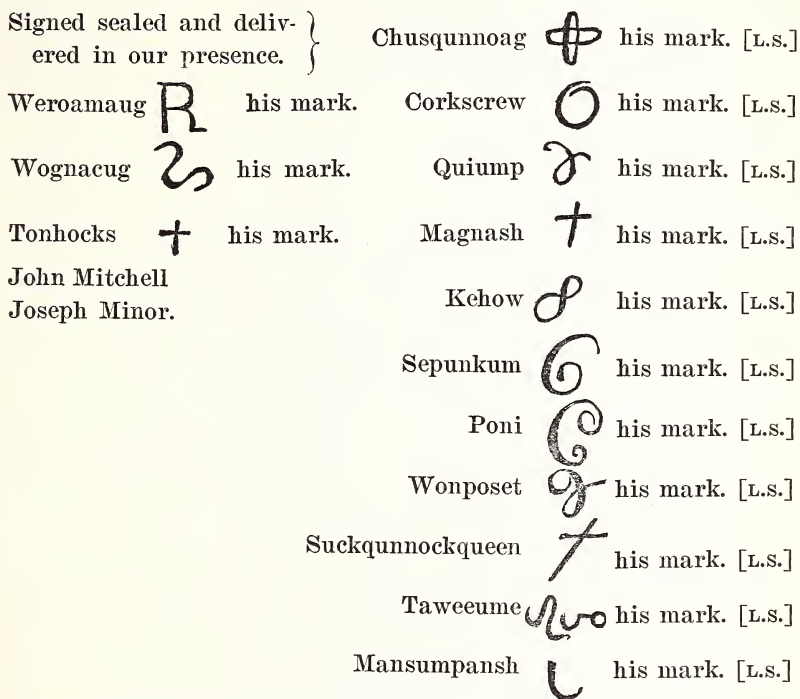 Signed sealed and deliv-
ered in our presence.
Weroamaug R his mark.
Wognacug his mark.
Tonhocks + his mark.
John Mitchell
Joseph Minor.
Chusqunnoag his mark. [L.S.]
Corkscrew his mark. [L.S.]
Quiump his mark. [L.S.]
Magnash his mark. [L.S.]
Kehow his mark. [L.S.]
Sepunkum his mark. [L.S.]
Poni his mark. [L.S.]
Wonposet his mark. [L.S.]
Suckqunnockqueen his mark. [L.S.]
Taweeume his mark. [L.S.]
Mansumpansh his mark. [L.S.]